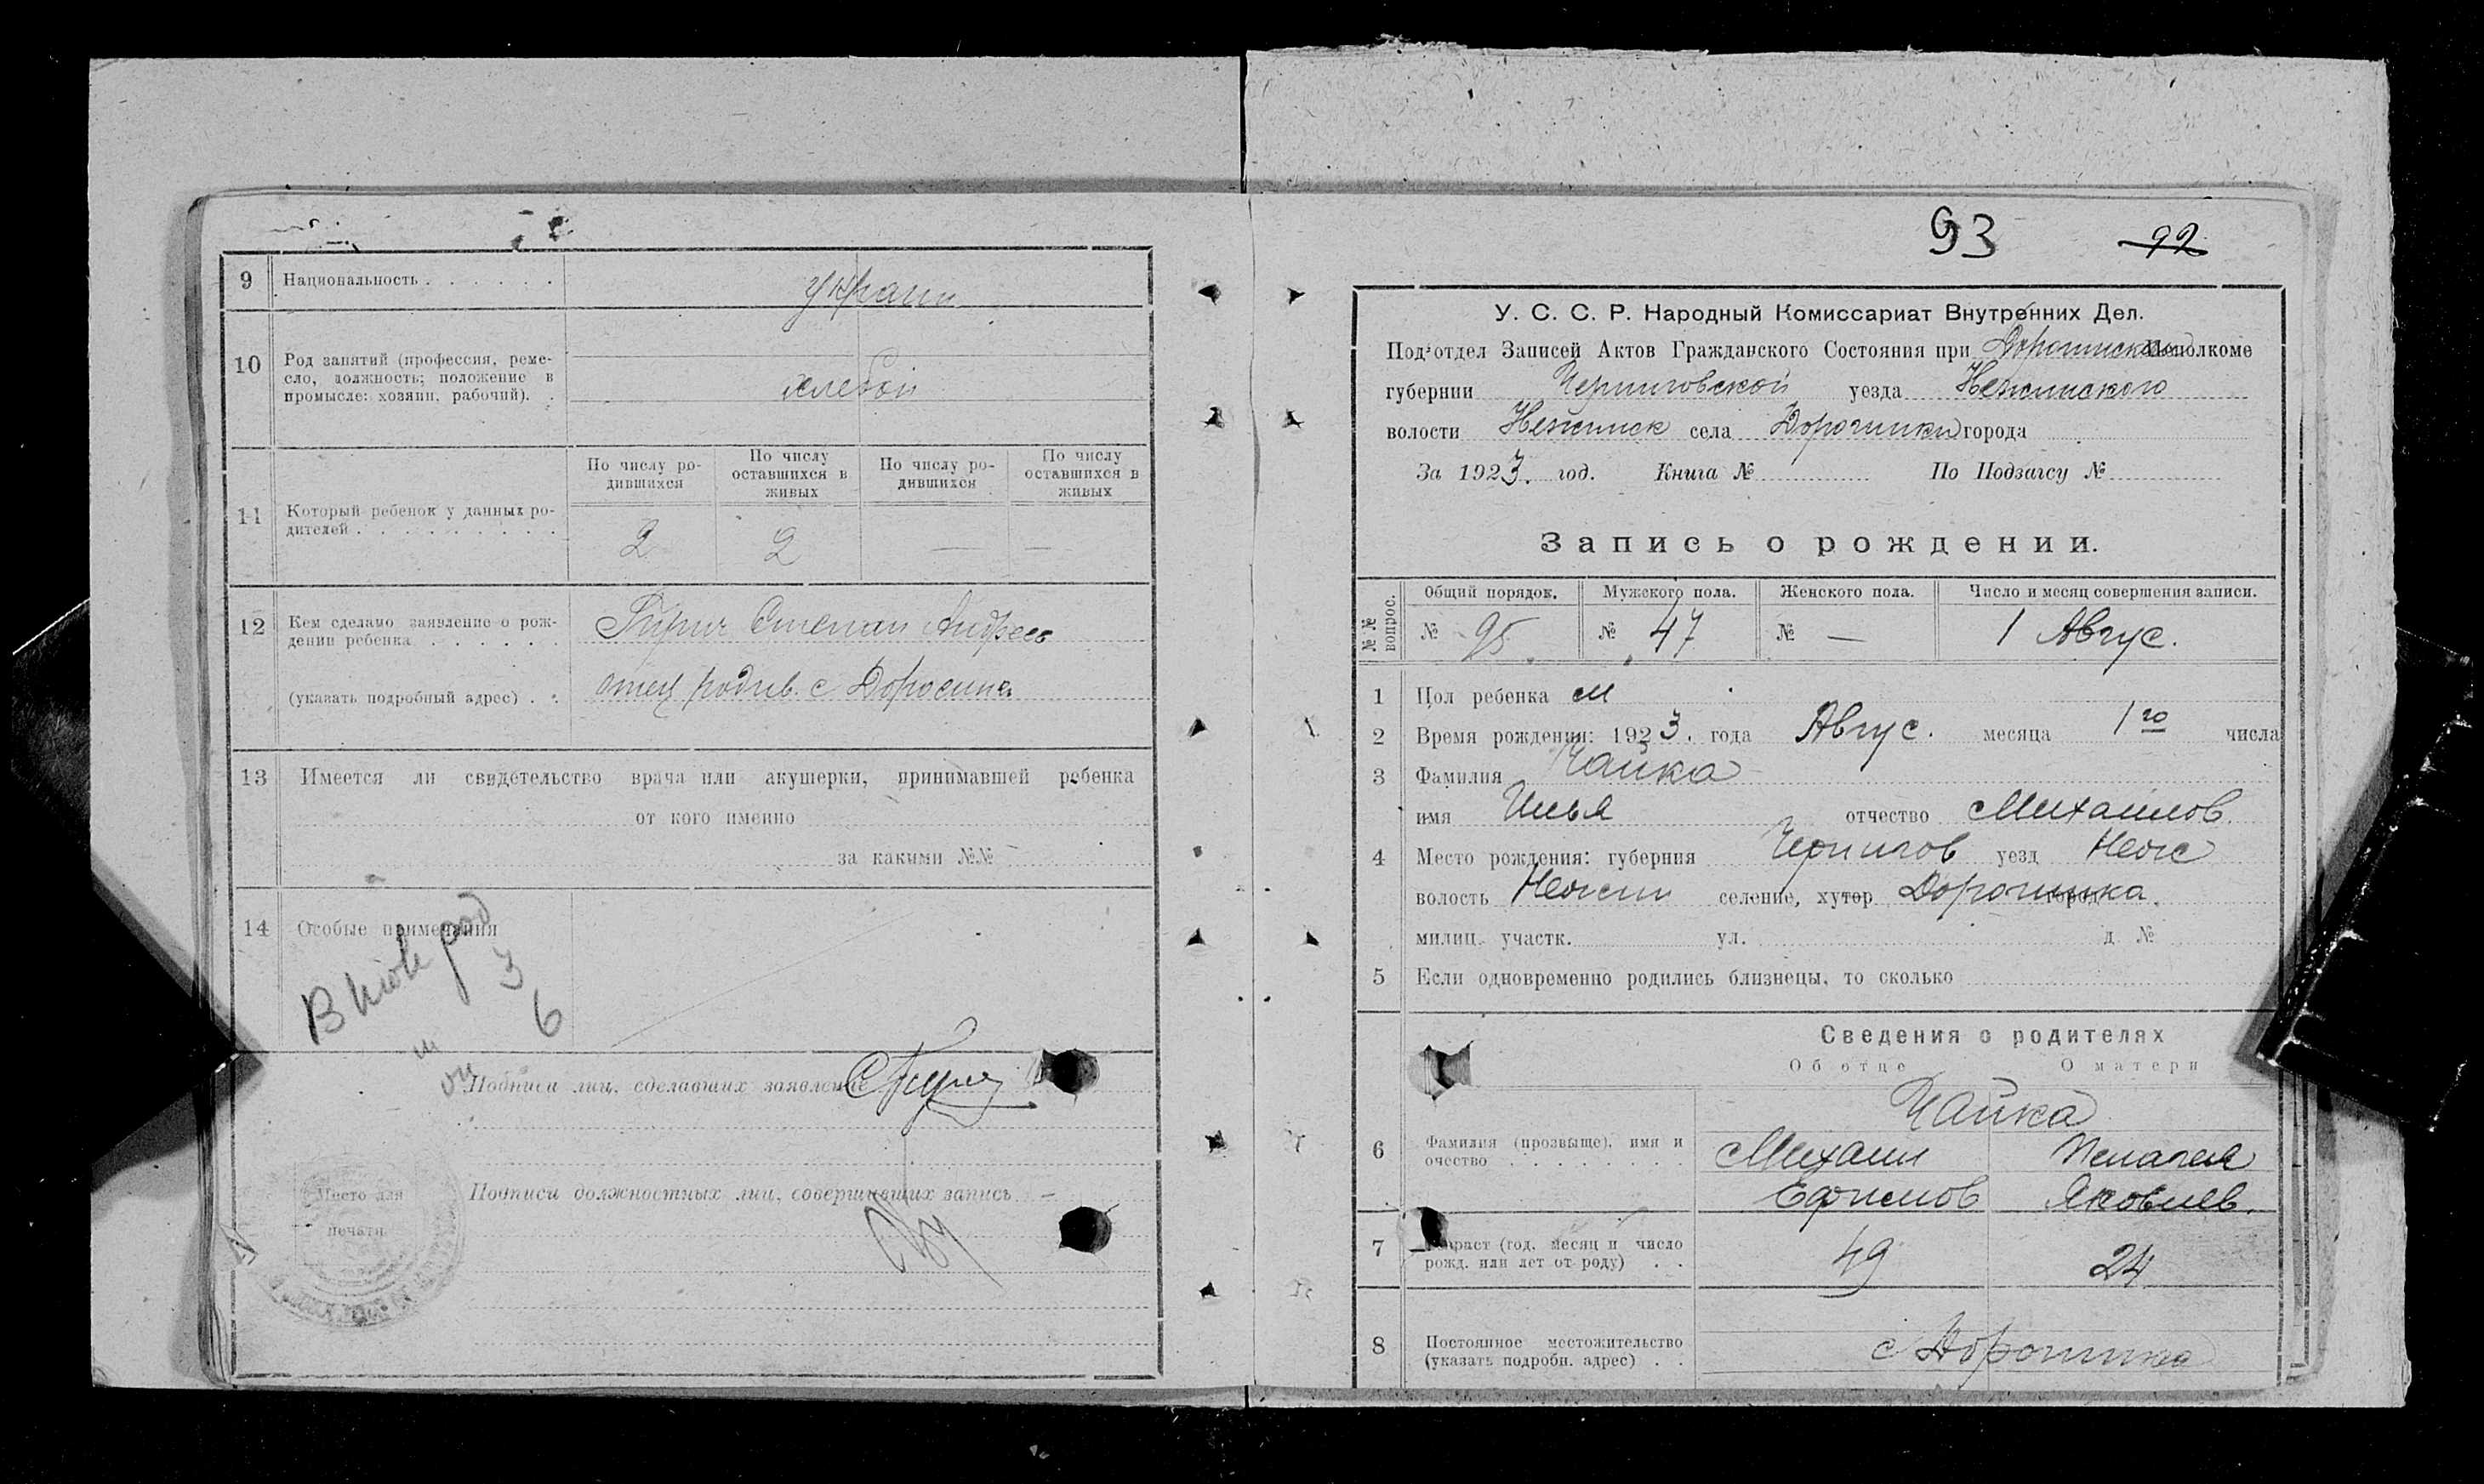 9 Национальность . . . . . . украин
10 Род занятий (профессия, реме-
сло, должность; положение в
промысле: хозяин, рабочий). .
хлебоп
11 Который ребенок у данных ро-
дителей . . . . . . . . .
По числу ро-
дившихся
По числу
оставшихся в
живых
По числу ро-
дившихся
По числу
оставшихся в
живых
2 2 — —
12 Кем сделано заявление о рож-
дении ребенка . . . . . .
Степан Андреев
(указать подробный адрес) . .
отец родив. с
13 Имеется ли свидетельство врача или акушерки, принимавшей ребенка
от кого именно
за какими №№
14 Особые примечания
3
6
Подписи лиц, сделавших заявление
Место для
печати
Подписи должностных лиц, совершивших запись
93 92
У. С. С. Р. Народный Комиссариат Внутренних Дел.
Подʼотдел Записей Актов Гражданского Состояния при Дорогинском Исполкоме
губернии Черниговской уезда Нежинского
волости Нежинск села Дорогинки города
За 1923. год. Книга № По Подзагсу №
Запись о рождении.
№ №
вопрос.
Общий порядок. Мужского пола. Женского пола. Число и месяц совершения записи.
№ 95 № 47 № — 1 Авгус.
1 Пол ребенка м
2 Время рождения: 1923. года Авгус. месяца 1го числа
3 Фамилия Чайка
имя Илья отчество Михаилов.
4 Место рождения: губерния Чернигов уезд Неж
волость Нежин селение, хутор Дорогинка город
милиц. участк. ул. д №
5 Если одновременно родились близнецы, то сколько
Сведения о родителях
Об отце О матери
Чайка
6 Фамилия (прозвыще), имя и
очество . . . . . . . .
Михаил Пелагея
Ефимов Яковлев.
7 Возраст (год, месяц и число
рожд. или лет от роду) . .
49 24
8 Постоянное местожительство
(указать подробн. адрес) . .
с Дорогинка